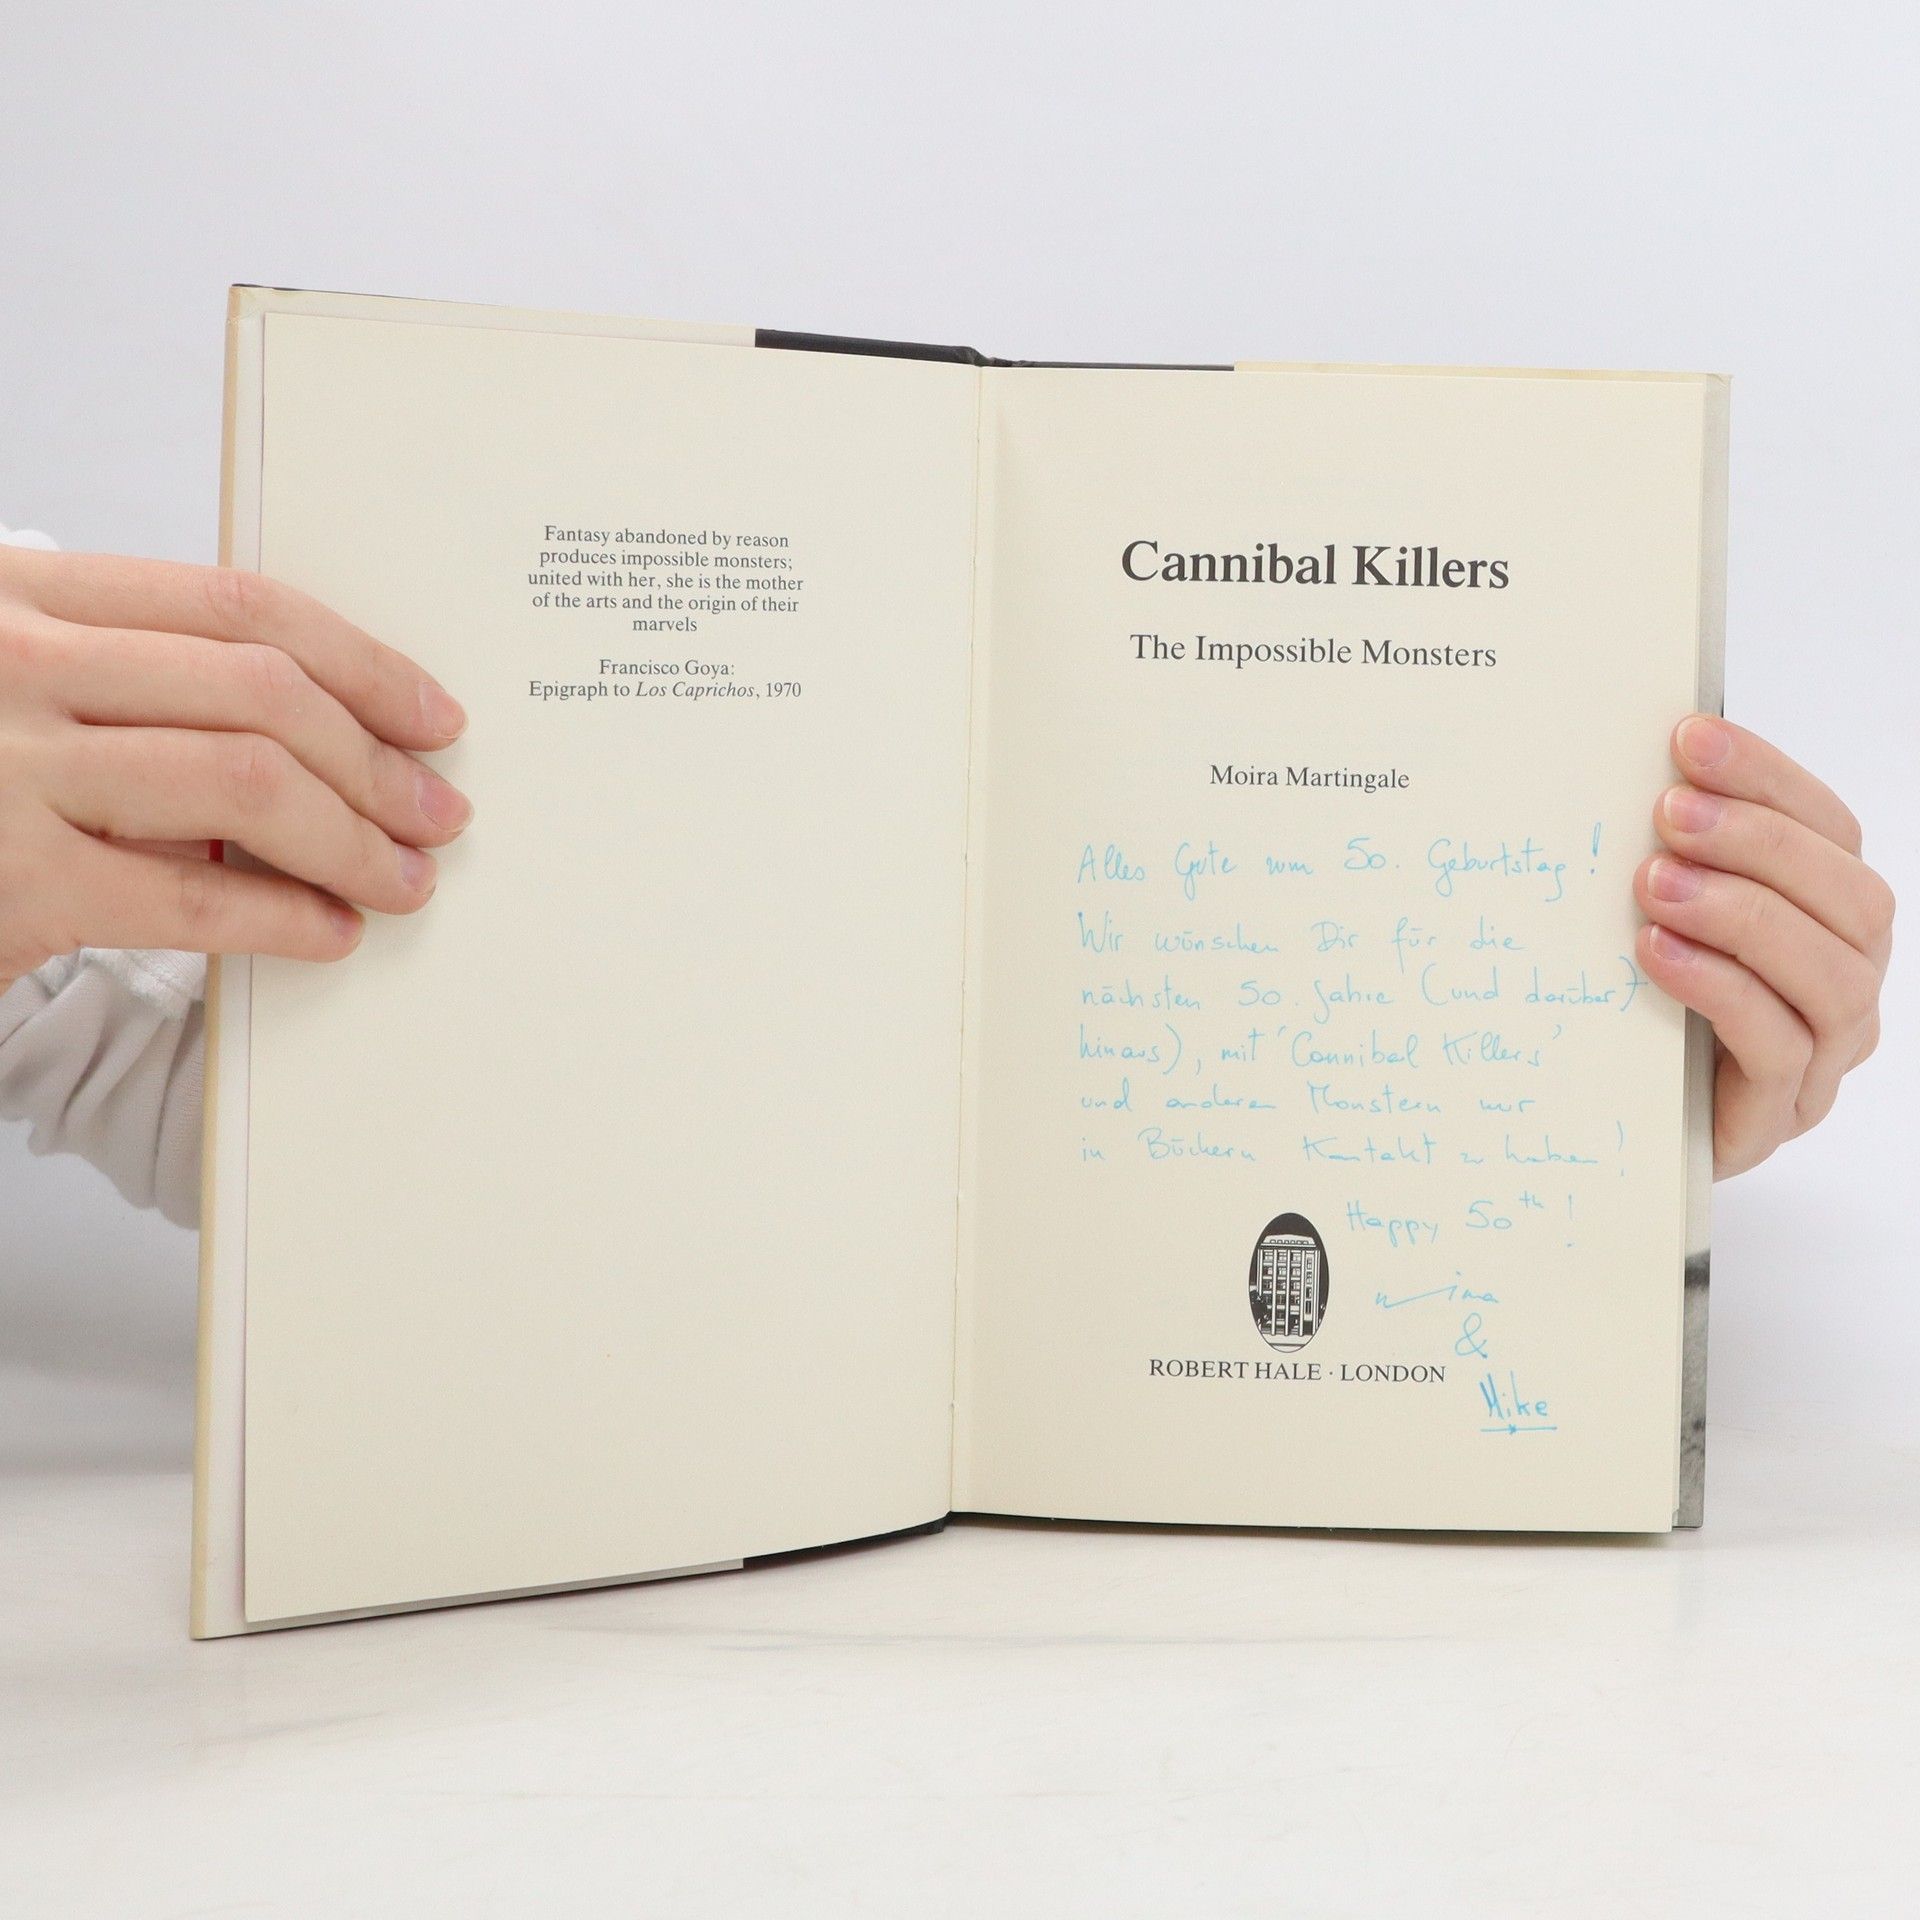 Fantasy abandoned by reason
produces impossible monsters;
united with her, she is the mother
of the arts and the origin of their
marvels
Francisco Goya:
Epigraph to Los Caprichos, 1970
Cannibal Killers
The Impossible Monsters
Moira Martingale
Alles Gute zum 50. Geburtstag!
Wir wünschen Dir für die
nächsten 50. Jahre (und darüber
hinaus), mit 'Cannibal Killers'
und anderen Monstern nur
in Büchern Kontakt zu haben!
Happy 50th!
&
Mike
ROBERT HALE · LONDON